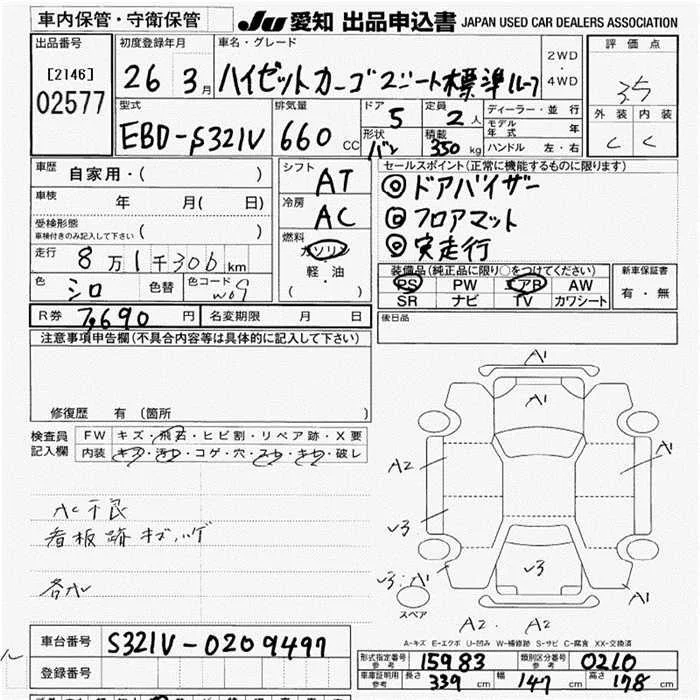 車内保管・守衛保管
JU 愛知 出品申込書 JAPAN USED CAR DEALERS ASSOCIATION
出品番号
[2146]
02577
初度登録年月
26年 3月
車名・グレード
ハイゼットカーゴ 2シート標準ルーフ
2WD
・
4WD
評価点
3.5
外装 内装
C C
型式
EBD-S321V
排気量
660 CC
ドア
5
定員
2人
形状
バン
積載
350 kg
ディーラー・並行
モデル年式 年
ハンドル 左・右
車歴
自家用・( )
車検 年 月( 日)
受検形態
車検付きのみ記入して下さい ( )
走行 8万1千306km
色 シロ 色替 色コード W09
シフト
AT
冷房
AC
燃料
ガソリン
軽・油
・( )
セールスポイント(正常に機能するものに限ります)
◎ドアバイザー
◎フロアマット
◎実走行
装備品(純正品に限り○をつけてください)
PS PW エアB AW
SR ナビ TV カワシート
新車保証書
有・無
後日品
R券 7,690円
名変期限 月 日
注意事項申告欄(不具合内容等は具体的に記入して下さい)
修復歴 有(箇所 )
検査員記入欄
FW キズ・飛石・ヒビ割・リペア跡・X要
内装 キズ・汚れ・コゲ・穴・スレ・キレ・破レ
AC不良
看板跡 キズ,ハゲ
A1
A1
A2
A1
v3
v3
v3:A1
A1
スペア
A2 A2
A-キズ E-エクボ U-凹み W-補修跡 S-サビ C-腐食 XX-交換済
車台番号 S321V-0209497
登録番号
形式指定番号 参考 15983
類別区分番号 参考 0210
車庫証明用 参考 長さ 339cm 幅 147cm 高さ 178cm